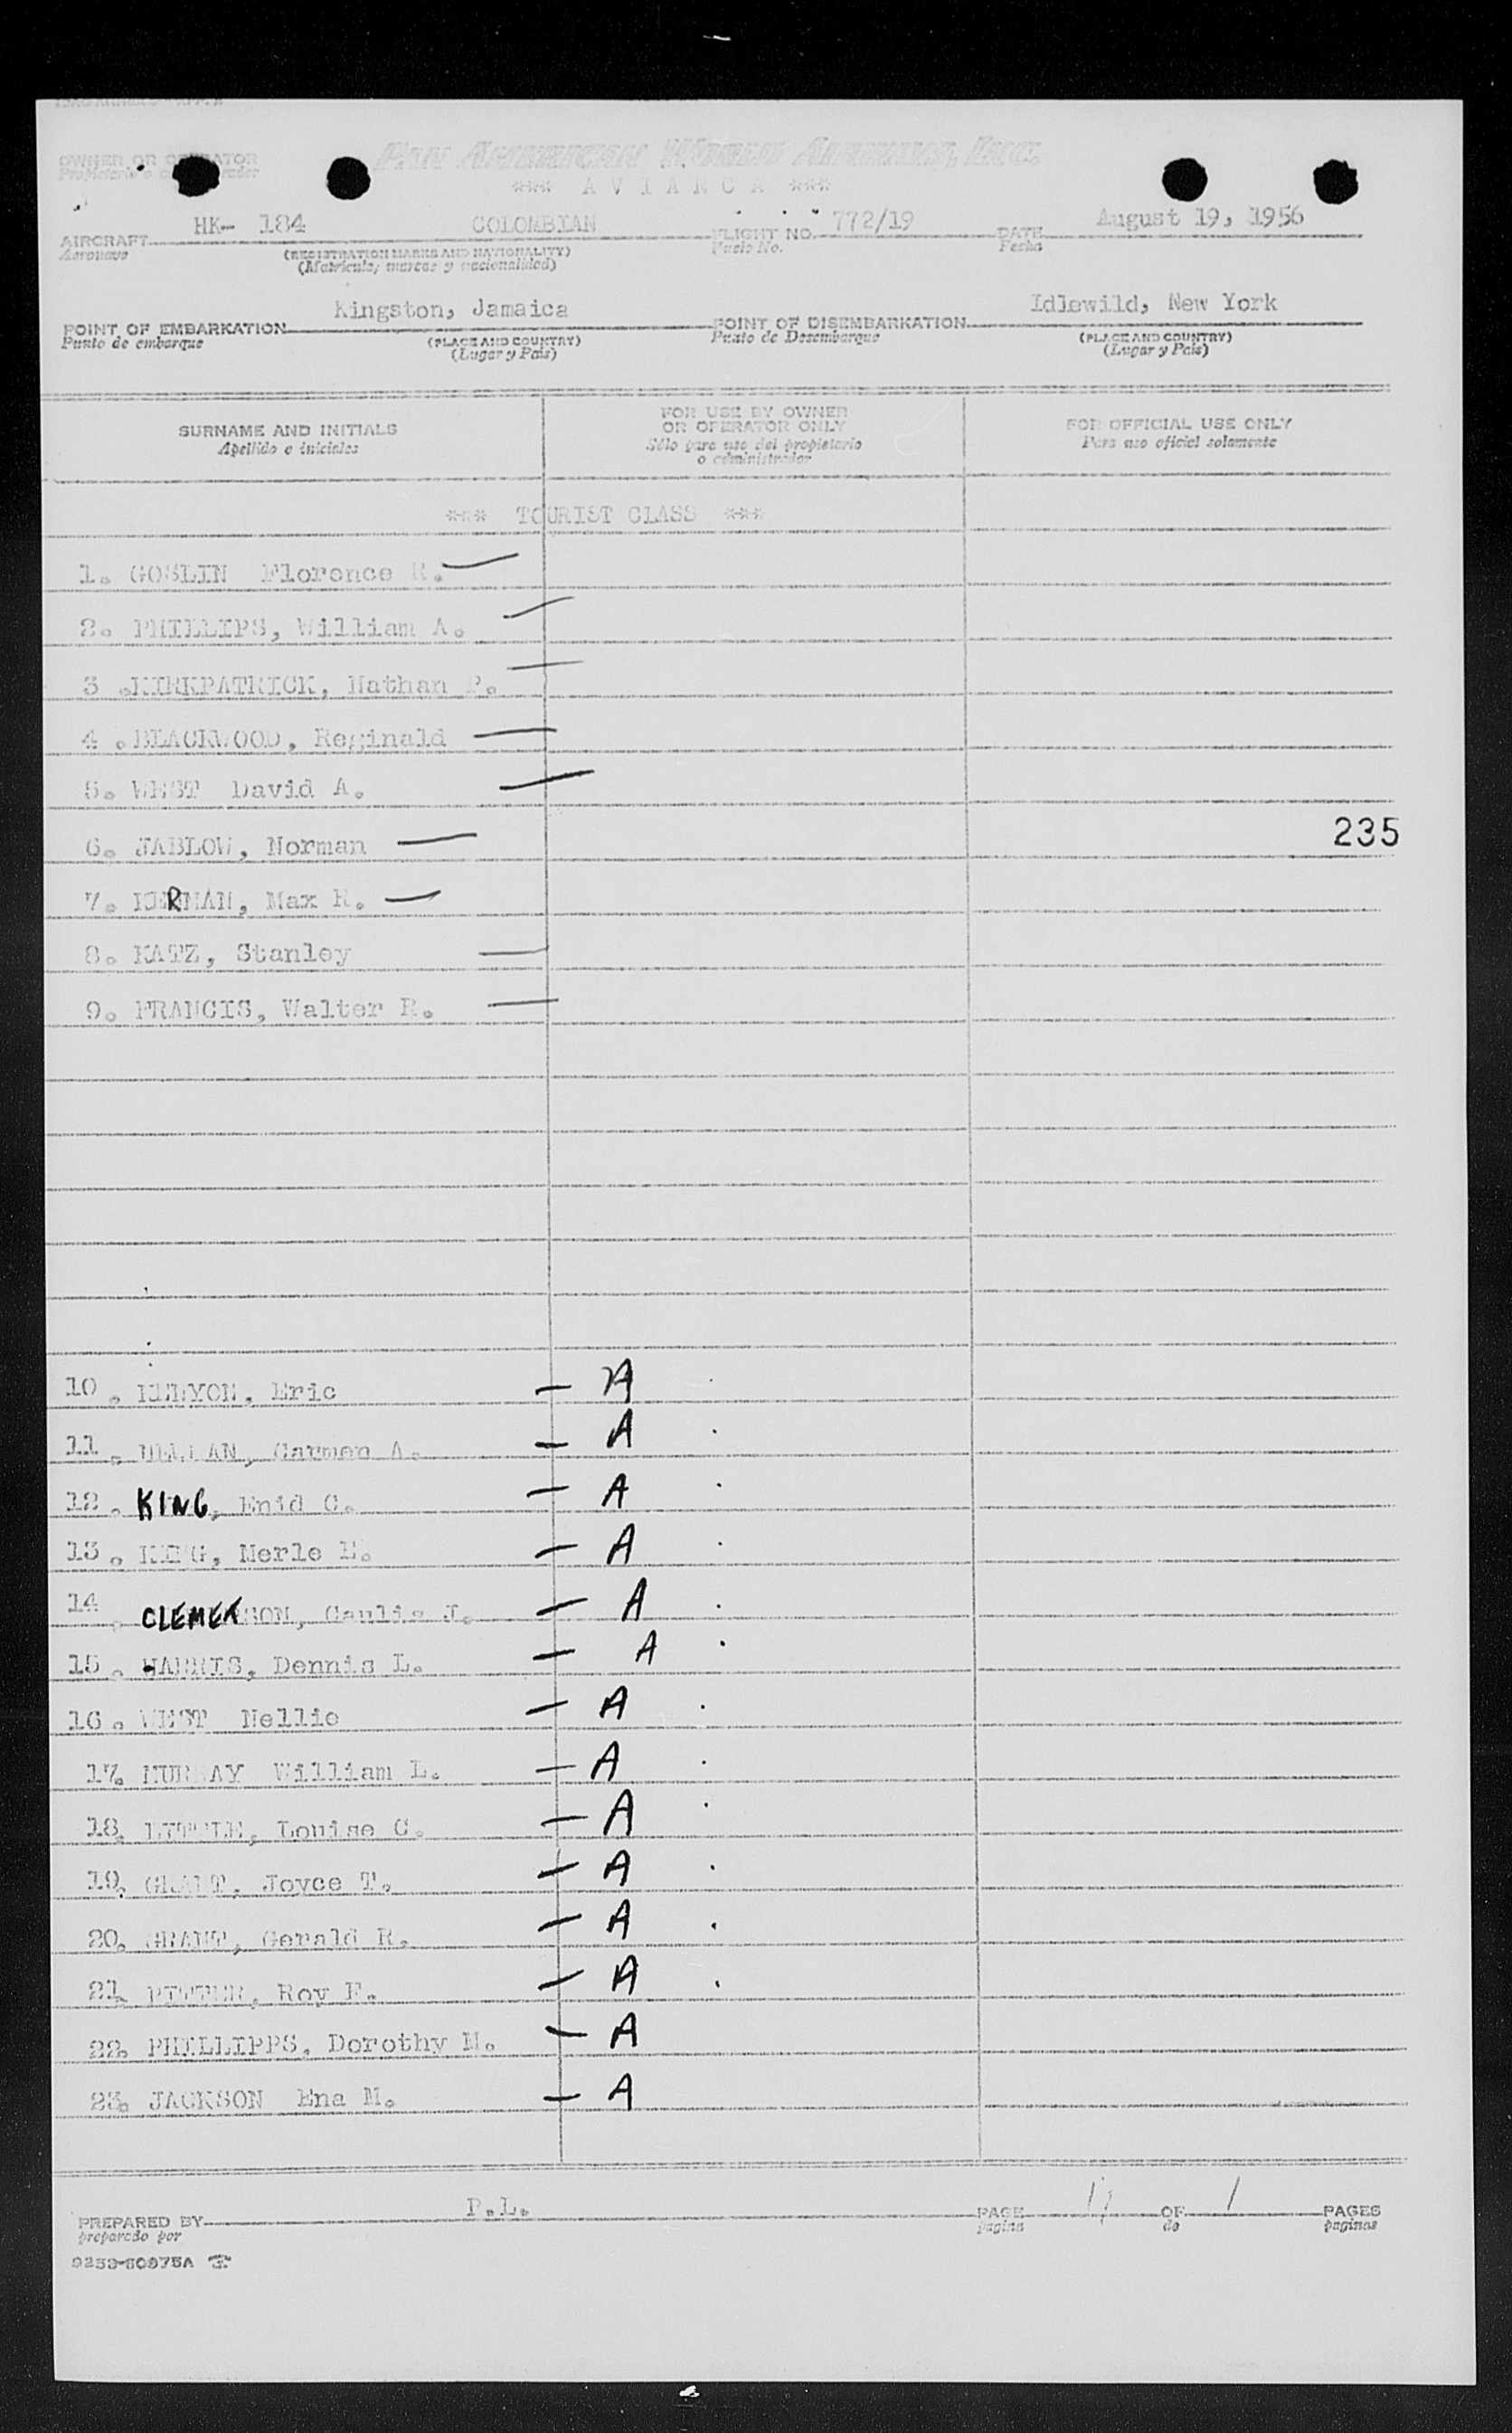 OWNER OR OPERATOR
PAN AMERICAN WORLD AIRWAYS, INC.
*** A V I A N C A ***
HK- 184 COLOMBIAN 772/19 August 19, 1956
AIRCRAFT FLIGHT NO. DATE
Aeronave (REGISTRATION MARKS AND NATIONALITY) Vuelo No. Fecha
(Matricula, marcas y nacionalidad)
Kingston, Jamaica Idlewild, New York
POINT OF EMBARKATION POINT OF DISEMBARKATION
Punto de embarque (PLACE AND COUNTRY) Punto de Desembarque (PLACE AND COUNTRY)
(Lugar y Pais) (Lugar y Pais)
SURNAME AND INITIALS FOR USE BY OWNER OR OPERATOR ONLY FOR OFFICIAL USE ONLY
Apellido e iniciales Sólo para uso del propietario o administrador Para uso oficial solamente
*** TOURIST CLASS ***
1. GOSLIN Florence R.
2. PHILLIPS, William A.
3 .KIRKPATRICK, Nathan P.
4 .BLACKWOOD, Reginald
5. WEST David A.
6. JABLOW, Norman
235
7. KERMAN, Max R.
8. KATZ, Stanley
9. FRANCIS, Walter R.
10 . KENYON, Eric — A
11 . Carmen A. — A
12 . KING, Enid C. — A
13 . KING, Merle E. — A
14 . CLEMETSON, J. — A
15 . HARRIS, Dennis L. — A
16 . WEST Nellie — A
17. MURRAY William L. — A
18. Louise C. — A
19. GRANT, Joyce T. — A
20. GRANT, Gerald R. — A
21. Roy — A
22. PHILLIPPS, Dorothy M. — A
23. JACKSON Ena M. — A
PREPARED BY P.L. PAGE OF 1 PAGES
preparado por pagina de paginas
9253-60975A